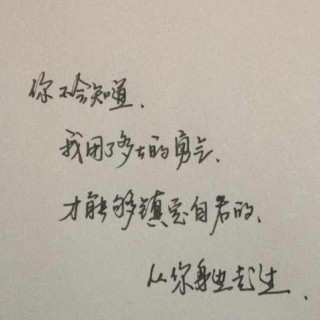 你不会知道、
我用了多大的勇气、
才能够镇定自若的、
从你身边走过、